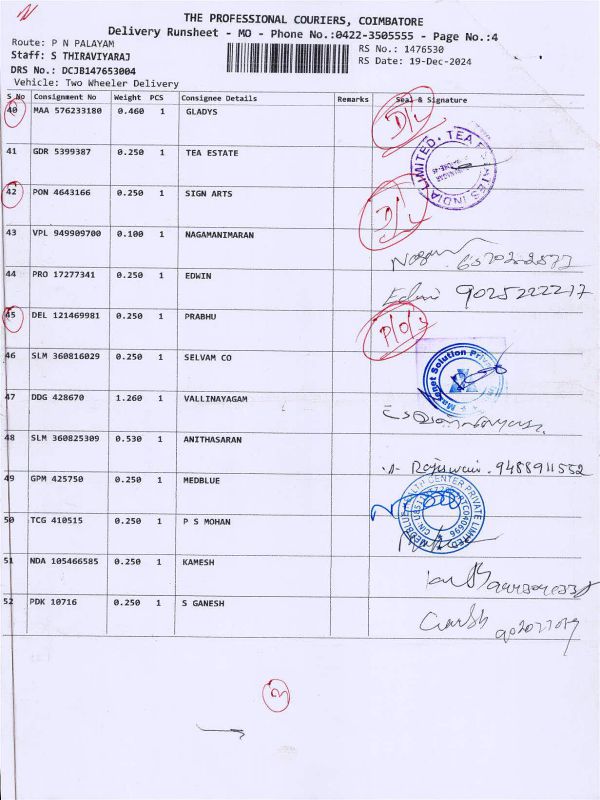 THE PROFESSIONAL COURIERS, COIMBATORE
Delivery Runsheet - MO - Phone No.:0422-3505555 - Page No.:4
Route: P N PALAYAM
RS No.: 1476530
Staff: S THIRAVIYARAJ
RS Date: 19-Dec-2024
DRS No.: DCJB147653004
Vehicle: Two Wheeler Delivery
S No Consignment No Weight PCS Consignee Details Remarks Seal & Signature
40 MAA 576233180 0.460 1 GLADYS D/L
41 GDR 5399387 0.250 1 TEA ESTATE
TEA ESTATES INDIA LIMITED
42 PON 4643166 0.250 1 SIGN ARTS D/L
43 VPL 949909700 0.100 1 NAGAMANIMARAN
44 PRO 17277341 0.250 1 EDWIN Edwin 9025222217
45 DEL 121469981 0.250 1 PRABHU
46 SLM 360816029 0.250 1 SELVAM CO
47 DDG 428670 1.260 1 VALLINAYAGAM
48 SLM 360825309 0.530 1 ANITHASARAN Rajeswari. 9488911552
49 GPM 425750 0.250 1 MEDBLUE
50 TCG 410515 0.250 1 P S MOHAN
51 NDA 105466585 0.250 1 KAMESH
52 PDK 10716 0.250 1 S GANESH